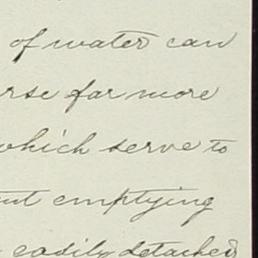 of water can
far more
which serve to
emptying
easily detached